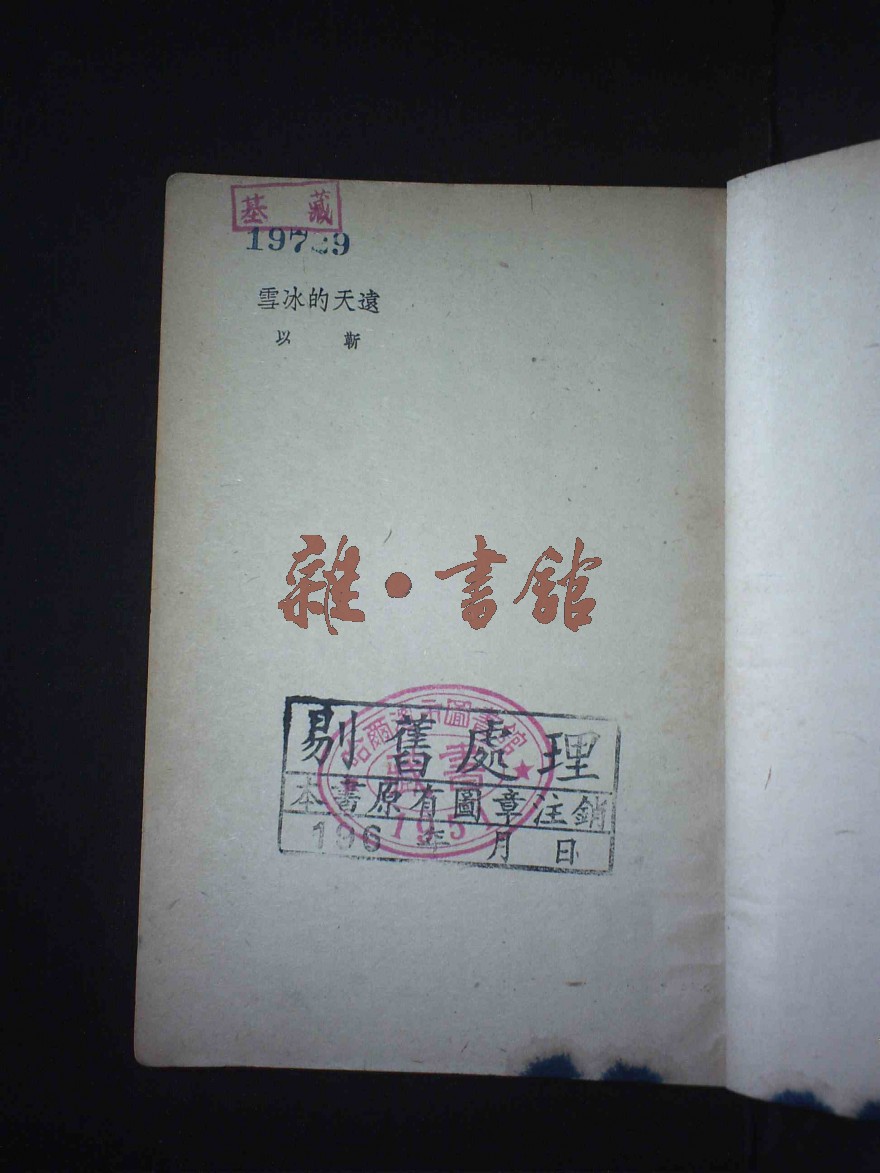 基藏
遠天的冰雪
靳以
雜·書館
哈爾濱市圖書館
藏書
剔舊處理
本書原有圖章注銷
196 年 月 日